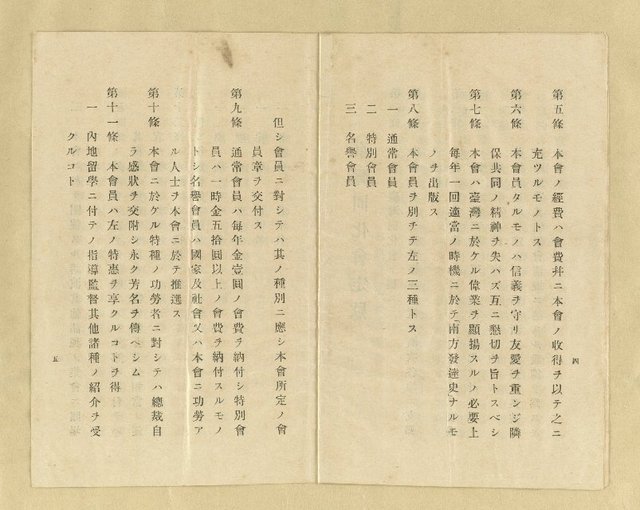 第五條　本會ノ經費ハ會費幷ニ本會ノ收得ヲ以テ之ニ
充ツルモノトス
第六條　本會員タルモノハ信義ヲ守リ友愛ヲ重ンジ隣
保共同ノ精神ヲ失ハズ互ニ懇切ヲ旨トスベシ
第七條　本會ハ臺灣ニ於ケル偉業ヲ顯揚スルノ必要上
每年一回適當ノ時機ニ於テ「南方發達史」ナルモ
ノヲ出版ス
第八條　本會員ヲ別チテ左ノ三種トス
一　通常會員
二　特別會員
三　名譽會員
四
但シ會員ニ對シテハ其ノ種別ニ應シ本會所定ノ會
員章ヲ交付ス
第九條　通常會員ハ每年金壹圓ノ會費ヲ納付シ特別會
員ハ一時金五拾圓以上ノ會費ヲ納付スルモノ
トシ名譽會員ハ國家及社會又ハ本會ニ功勞ア
ル人士ヲ本會ニ於テ推選ス
第十條　本會ニ於ケル特種ノ功勞者ニ對シテハ總裁自
ラ感狀ヲ交附シ永ク芳名ヲ傳ヘシム
第十一條　本會員ハ左ノ特惠ヲ享クルコトヲ得
一　內地留學ニ付テノ指導監督其他諸種ノ紹介ヲ受
クルコト
五